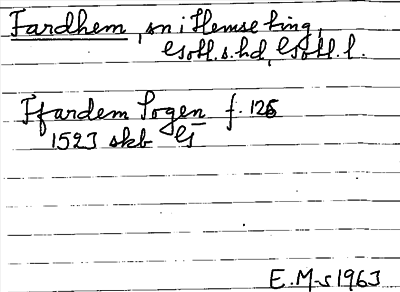 Fardhem, sn i Hemse ting,
Gotl. s. hd, Gotl. l.
Ffardem Sogen f. 126
1523 skb G
E.M-s 1963